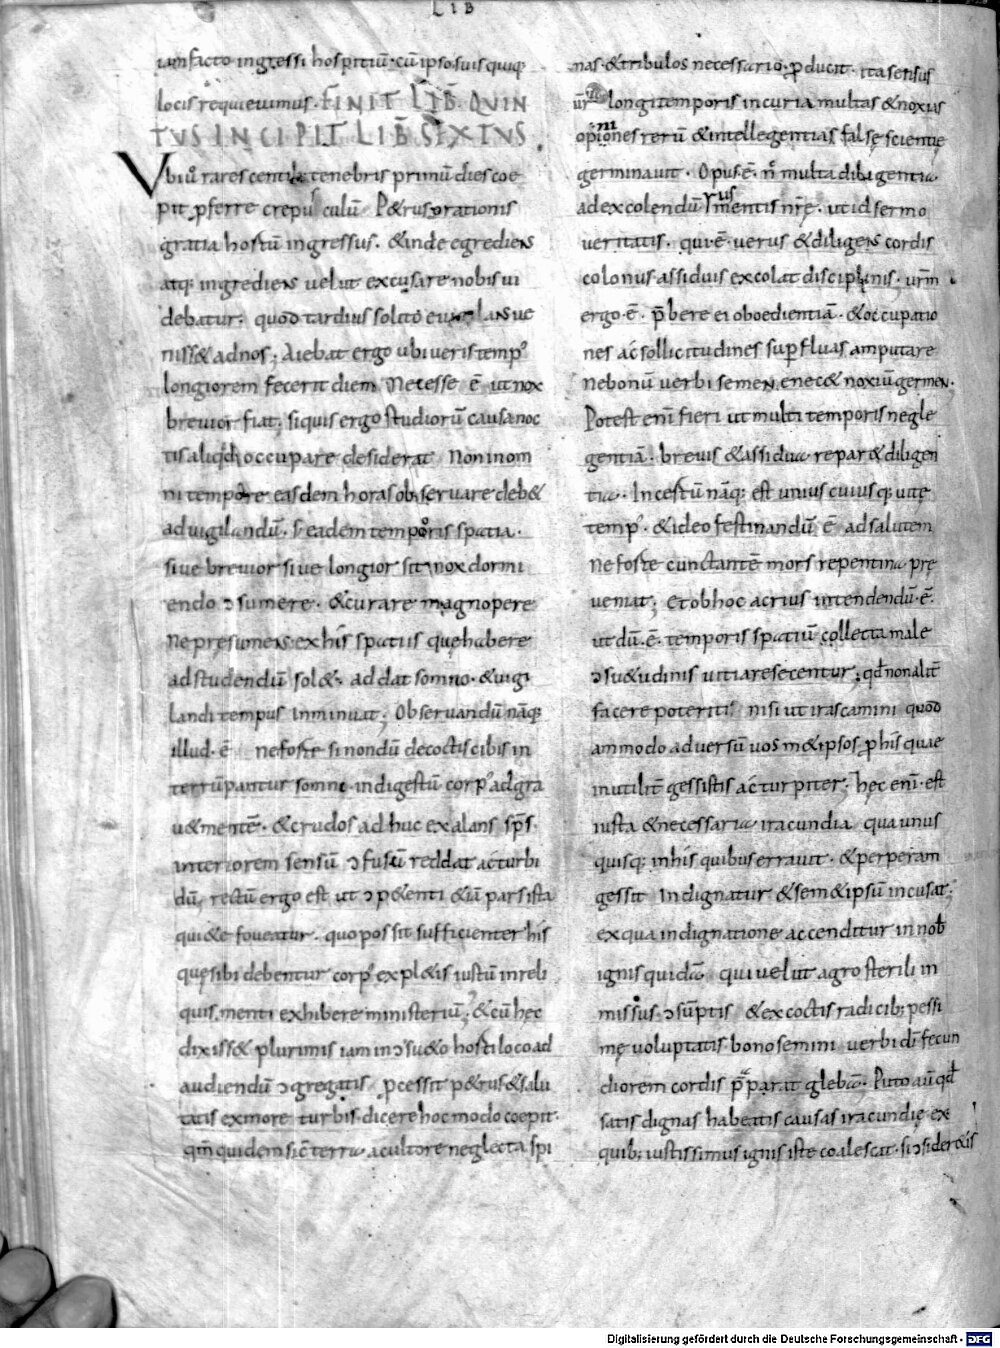 LIB
iam facto ingressi hospitiū· cū ipso suis quiq;
locis requievimus· FINIT LIB̄ QVIN
TVS INCIPIT LIB̄ SEXTVS
Vbi ů rarescentib; tenebris primū dies coe
pit ꝓferre crepusculū P&rus orationis
gratia hostū ingressus· &inde egrediens
atq; ingrediens velut excusare nobis ui
debatur; quod tardius solito
niss& ad nos; Aiebat ergo ubi veris temp᾿
longiorem fecerit diem Necesse ē ut nox
brevior fiat; siquis ergo studiorū causa noc
tis aliqđ occupare desiderat Non in om
ni tempore easdem horas observare deb&
ad vigilandū· s; eadem temporis spatia·
sive brevior sive longior sit nox dormi
endo ɔsumere· &curare magnopere
ne presumens ex his spatiis quę habere
ad studendū sol&; addat somno· &vigi
landi tempus inminuat; Observandū nāq;
illud· ē ne forte si nondū decoctis cibis in
terrūpantur somni· indigestū corp᾿ adgra
u&mentē· &crudos adhuc exalans sp̄s·
interiorem sensū ɔfusū reddat ac turbi
dū; rectū ergo est ut ɔp&enti &iā pars ista
qui&e foveatur· quo possit sufficienter his
quę sibi debentur corp᾿ expl&is iustū in reli
quis menti exhibere ministeriū; &cū hęc
dixiss& plurimis iam in ɔsu&o hostii loco ad
audiendū ɔgregatis ꝓcessit p&rus &salu
tatis ex more turbis· dicere hoc modo coepit·
qm̄ quidem sic terra a cultore neglecta spi
nas &tribulos necessario· ꝓducit· ita sensus
ur̄ longi temporis incuria multas &noxias
opiniones rerū &intellegentias falsę scientię
germinavit· Opus· ē· n̄ multa diligentia
ad excolendū rus mentis nr̄ę· ut id sermo
veritatis· qui· ē· verus &diligens cordis
colonus assiduis excolat disciplinis; ur̄m
ergo· ē· p̄bere ei oboedientiā· &occupatio
nes ac sollicitudines superfluas amputare
ne bonū verbi semen enec& noxiū germen·
Potest eni fieri ut multi temporis negle
gentiā· brevis &assidua repar& diligen
tia· Incertū nāq; est unius cuiusq; vitę
temp᾿· &ideo festinandū ē ad salutem
ne forte cunctantē mors repentina prę
veniat; et ob hoc acrius intendendū· ē·
ut dū· ē· temporis spatiū collecta male
ɔsu&udinis vitia resecentur; qđ non alit̄
facere poteritis nisi ut irascamini quod
ammodo adversū vos m&ipsos ꝓ his quae
inutilit̄ gessistis ac turpiter; hęc eni· est
iusta &necessaria iracundia qua unus
quisq; in his quibus erravit· &perperam
gessit Indignatur &sem&ipsū incusat;
ex qua indignatione accenditur in nob̄
ignis quidā qui velut agro sterili in
missus· ɔsūptis &excoctis radicib; pessi
mę voluptatis· bono semini verbi dī fecun
diorem cordis p̄parat glebā· Puto aū qđ
satis dignas habeatis causas iracundię ex
quib; iustissimus ignis iste coalescat· si ɔsider&is
Digitalisierung gefördert durch die Deutsche Forschungsgemeinschaft - DFG